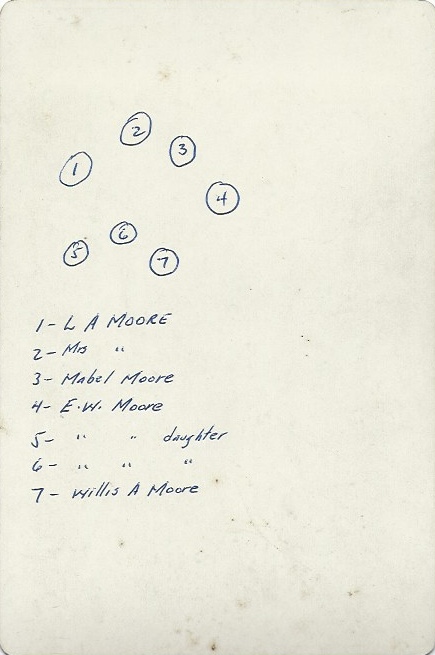 2
3
1
4
6
5
7
1 - L A MOORE
2 - Mrs "
3 - Mabel Moore
4 - E.W. Moore
5 - " " daughter
6 - " " "
7 - Willis A Moore